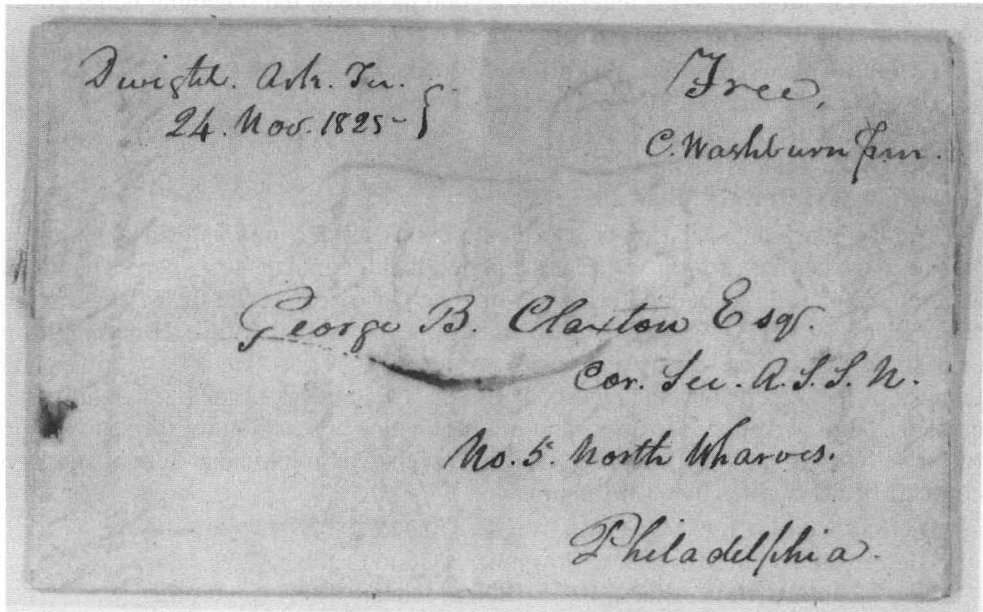 Dwight. Ark. Ter.
24. Nov. 1825-
Free,
C. Washburn P.m.
George B. Claxton Esqr.
Cor. Sec. A. S. S. U.
No. 5. North Wharves.
Philadelphia.